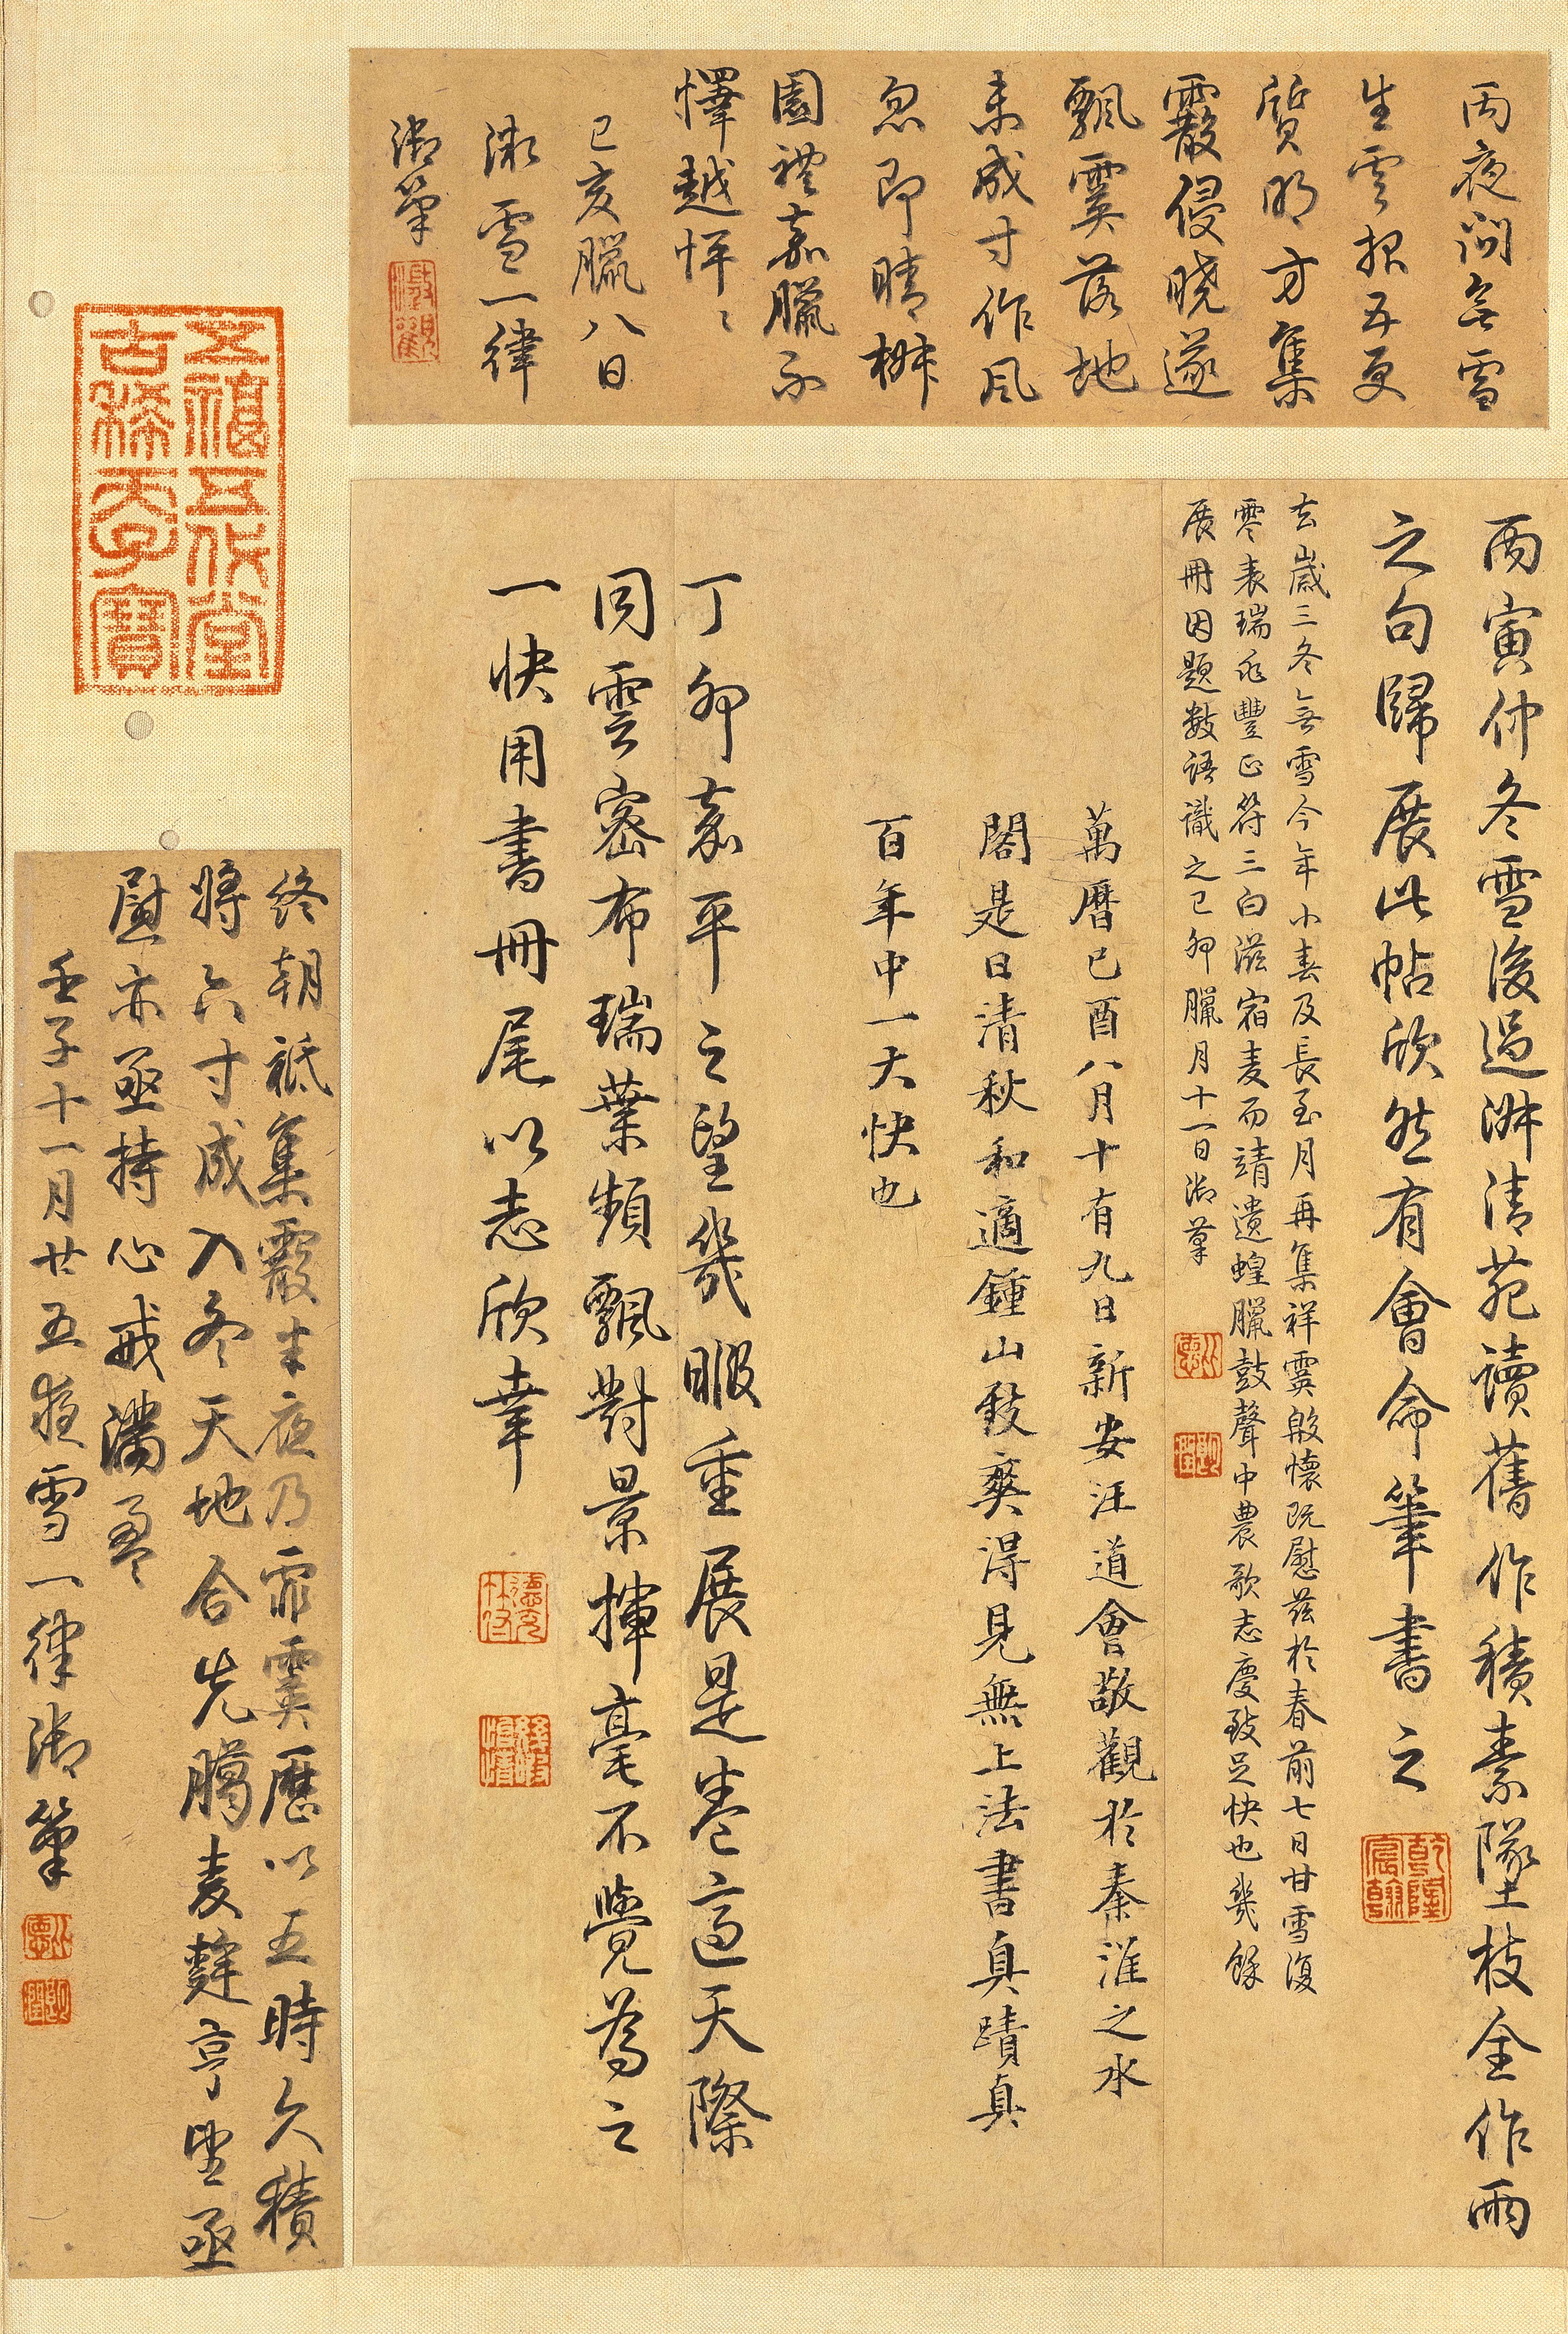 丙夜問無雪
生雲報五更
質明方集
霰侵曉遂
飄霙落地
未成寸作風
忽即晴楙
園禮嘉臘不
懌越怦〻
己亥臘八日
微雪一律
御筆
丙寅仲冬雪後過淋清苑讀舊作積素墜枝全作雨
之句歸展此帖欣然有會命筆書之
乾隆宸翰
去歲三冬無雪今年小春及長至月再集祥霙殷懷既慰茲於春前七日甘雪復
零表瑞兆豐正符三白滋宿麦而靖遺蝗臘鼓聲中農歌志慶致足快也幾餘
展冊因題數語識之己卯臘月十一日御筆
萬曆己酉八月十有九日新安汪道會敬觀於秦淮之水
閣是日清秋和適鍾山致爽得見無上法書真蹟真
百年中一大快也
丁卯嘉平之望幾暇重展是卷適天際
同雲密布瑞葉頻飄對景揮毫不覺為之
一快用書冊尾以志欣幸
五福五代堂
古稀天子寶
終朝祗集霰半夜乃霏霙歷以五時久積
將六寸成入冬天地合先臘麦麰亨望亟
慰亦亟持心戒滿盈
壬子十一月廿五夜雪一律御筆